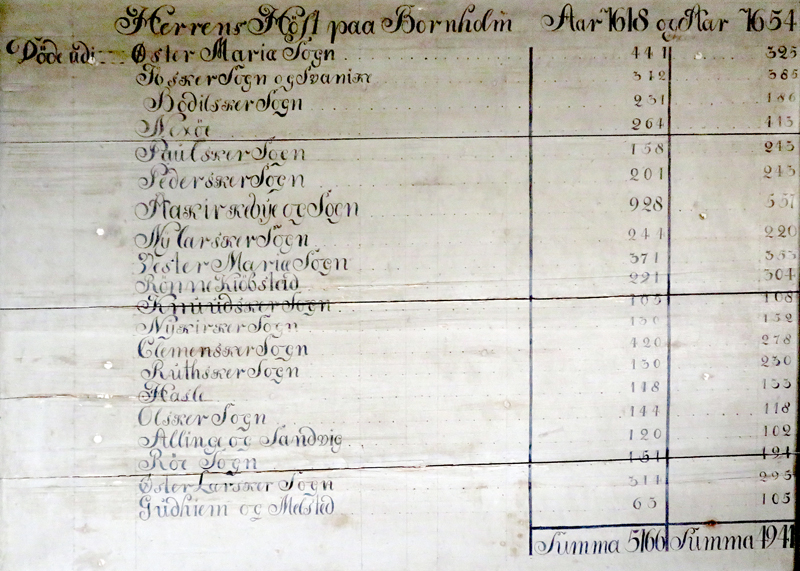 Herrens Höst paa Bornholm Aar 1618 og Aar 1654
Döde udi Öster Maria Sogn 441 325
Ibsker Sogn og Svanike 312 385
Bodilsker Sogn 231 186
Nexöe 264 413
Paulsker Sogn 158 243
Pedersker Sogn 201 243
Haakirkebÿe og Sogn 928 557
Nÿlarsker Sogn 244 220
Vester Maria Sogn 371 353
Rönne Kiöbsted 221 304
Knuudsker Sogn 105 108
Nÿkirker Sogn 130 132
Clemensker Sogn 420 278
Ruthsker Sogn 130 230
Hasle 118 133
Olsker Sogn 144 118
Allinge og Sandvig 120 102
Röe Sogn 151 124
Öster Larsker Sogn 314 295
Gudhiem og Melsted 63 105
Summa 5166 Summa 4941